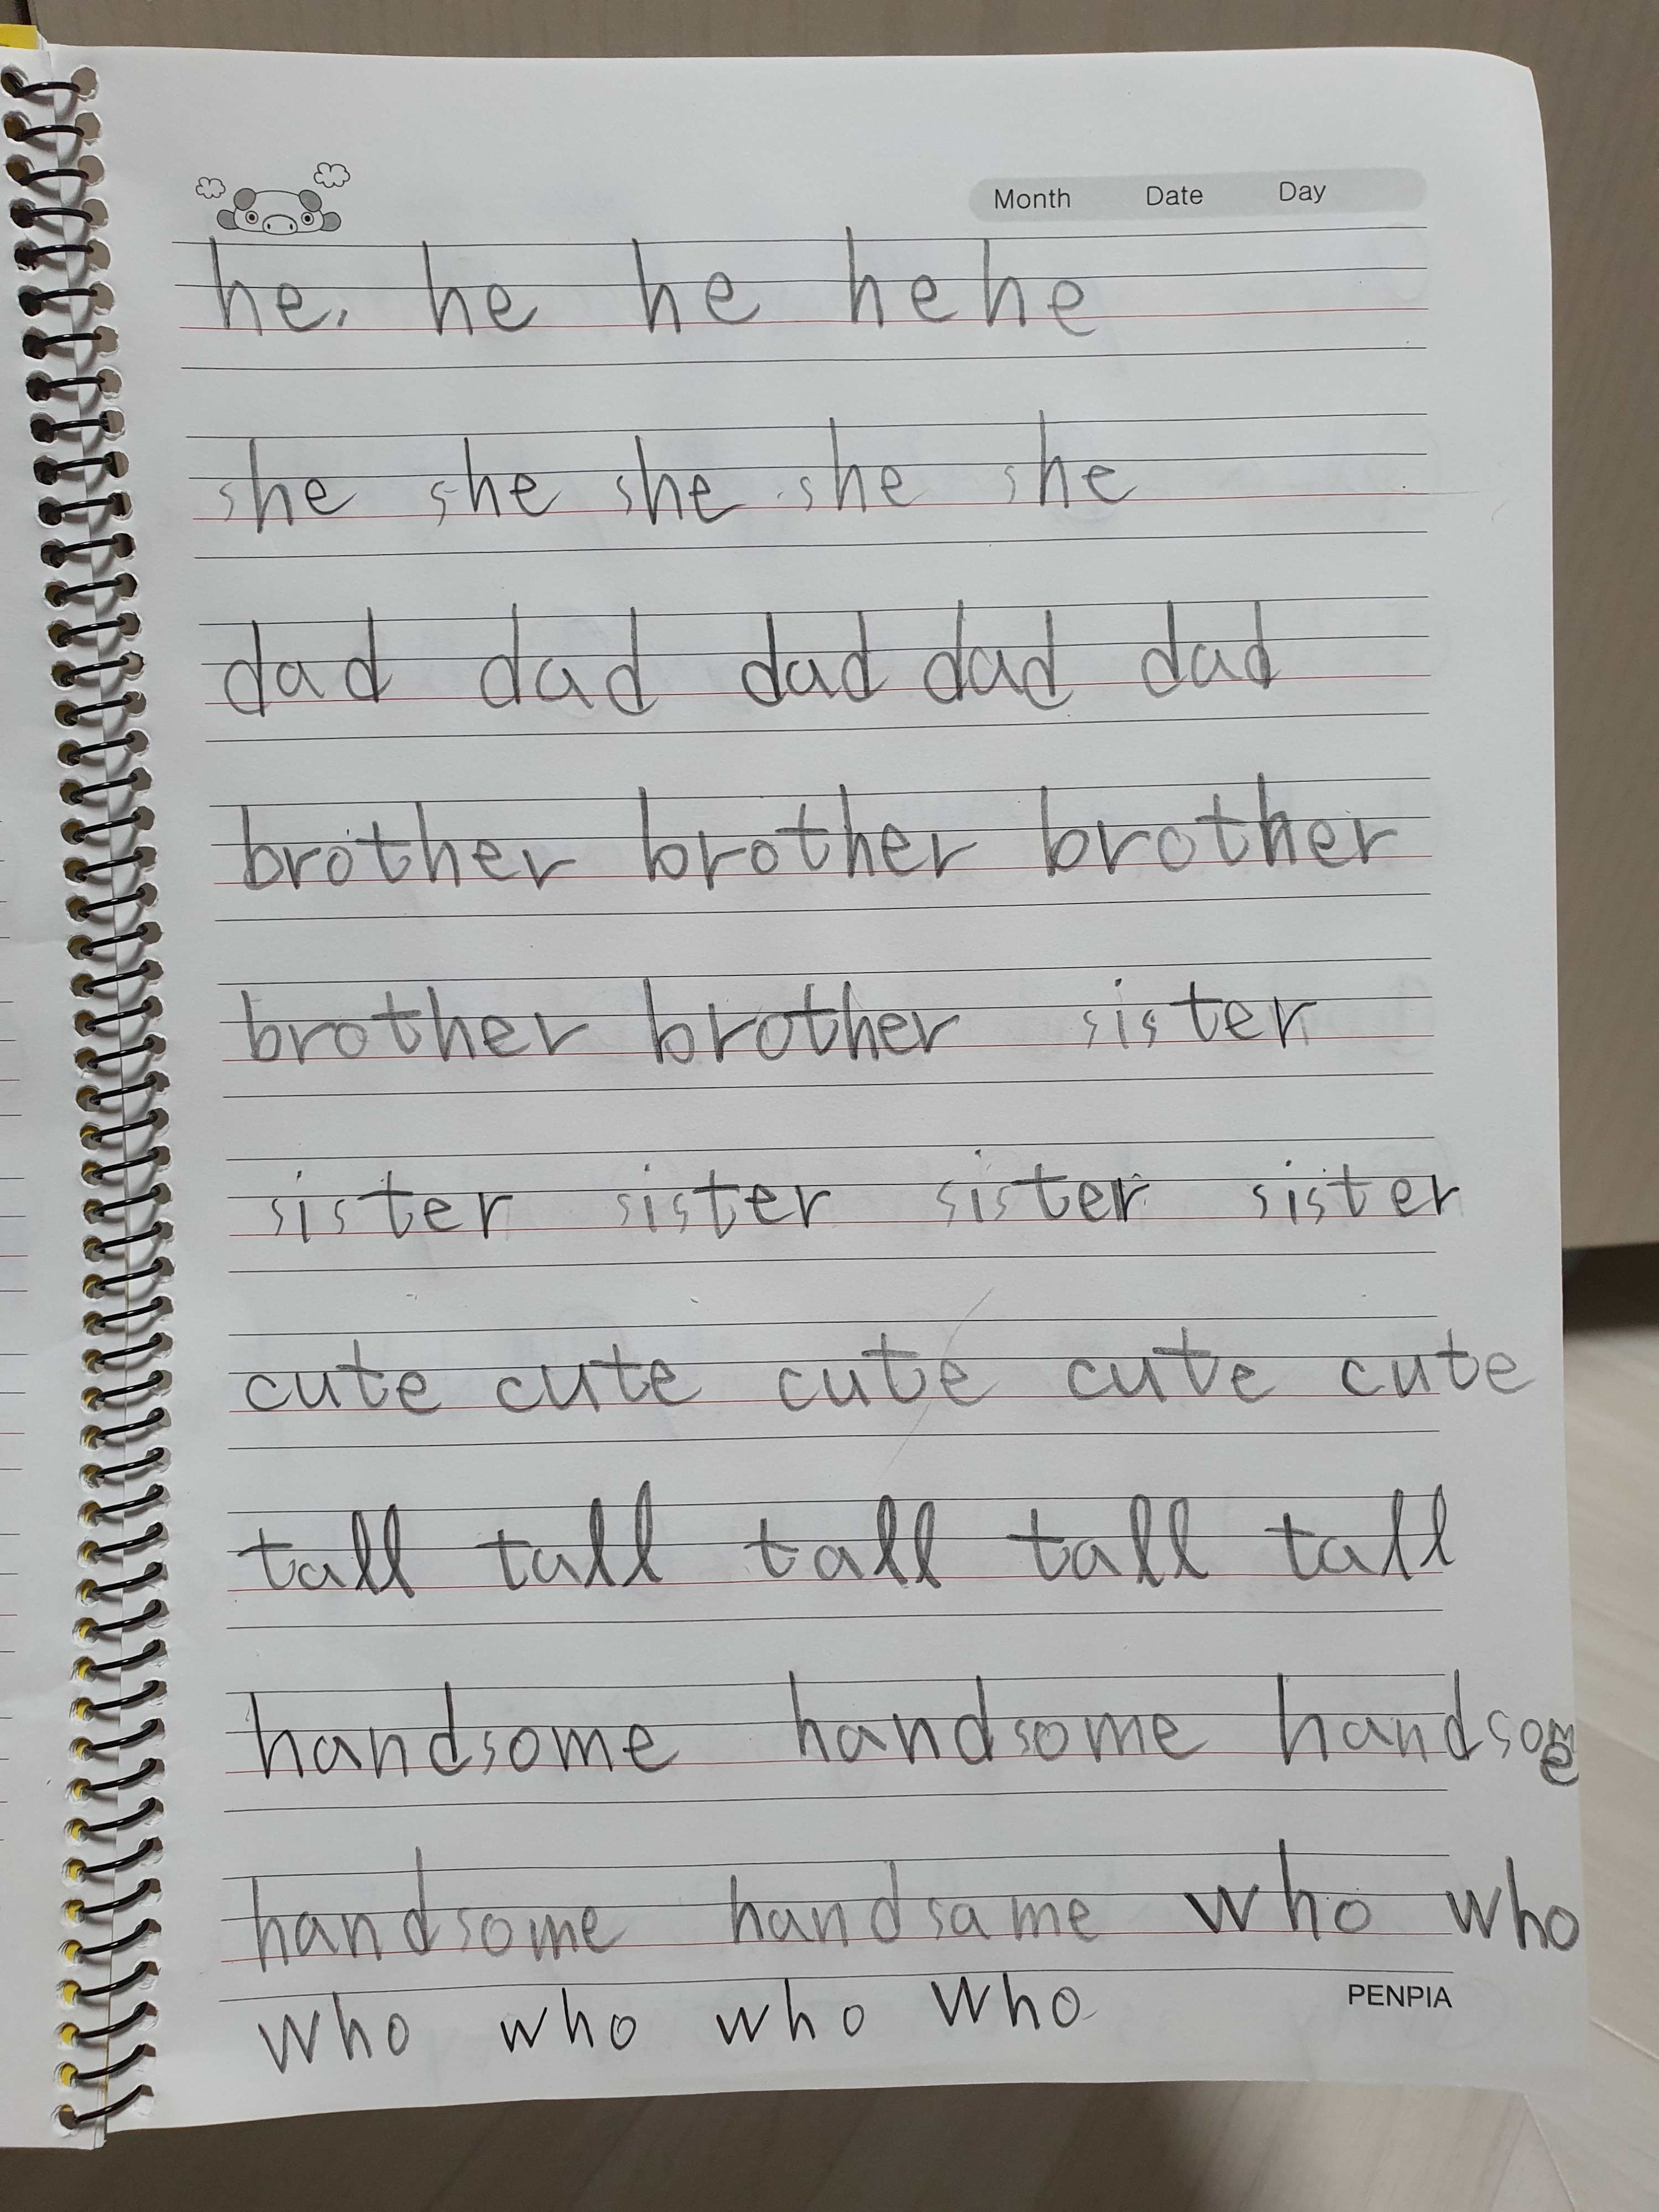 Month Date Day
he, he he he he
she she she she she
dad dad dad dad dad
brother brother brother
brother brother sister
sister sister sister sister
cute cute cute cute cute
tall tall tall tall tall
handsome handsome handsome
handsome handsame who who
who who who who
PENPIA